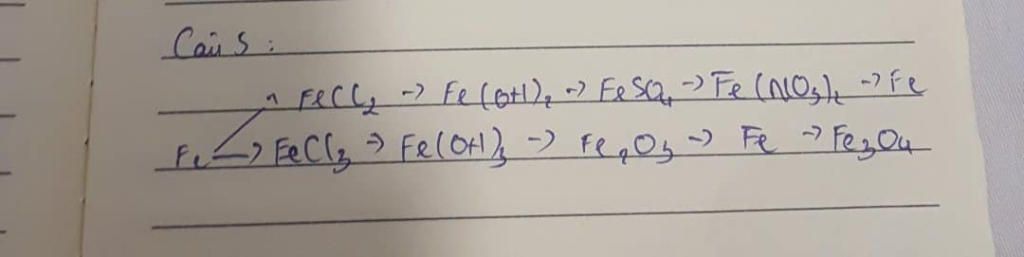 Câu 5:
FeCl₂ → Fe(OH)₂ → FeSO₄ → Fe(NO₃)₂ → Fe
Fe → FeCl₃ → Fe(OH)₃ → Fe₂O₃ → Fe → Fe₃O₄